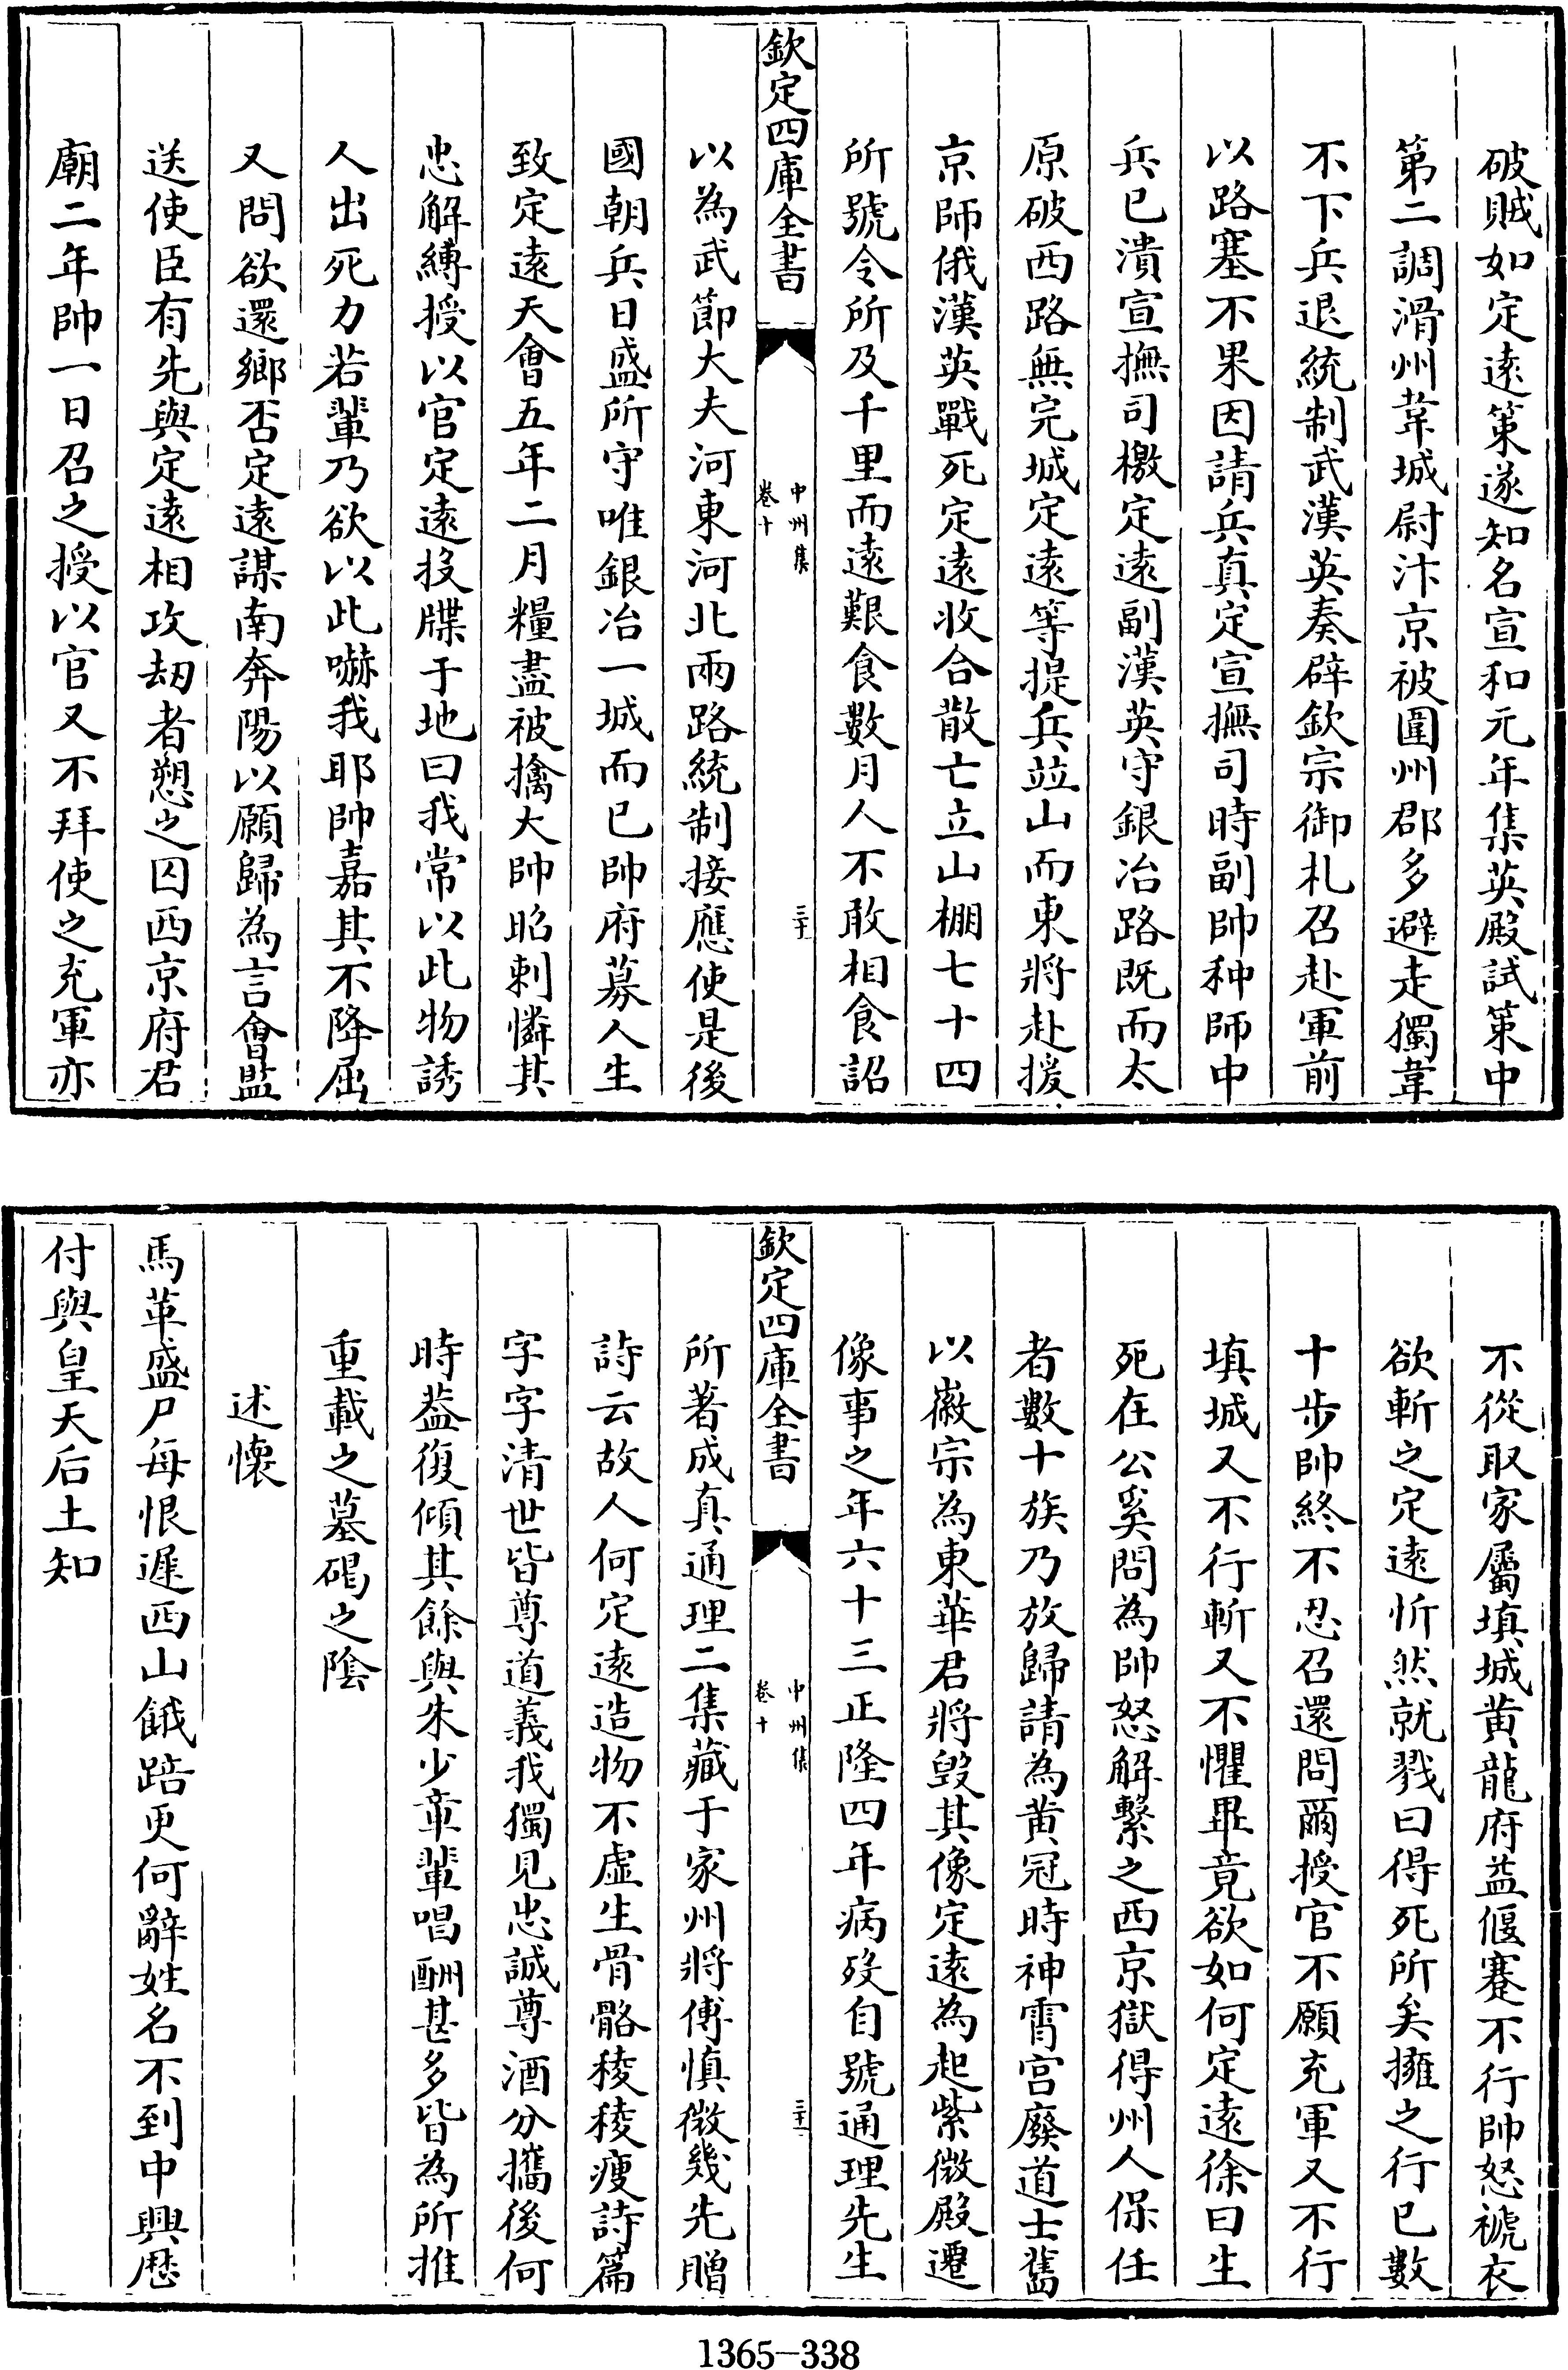 破賊如定遠策遂知名宣和元年集英殿試策中
第二調滑州韋城尉汴京被圍州郡多避走獨韋
不下兵退統制武漢英奏辟欽宗御札召赴軍前
以路塞不果因請兵真定宣撫司時副帥种師中
兵已潰宣撫司檄定遠副漢英守銀冶路既而太
原破西路無完城定遠等提兵並山而東將赴援
京師俄漢英戰死定遠收合散亡立山棚七十四
所號令所及千里而遠艱食數月人不敢相食詔
欽定四庫全書
中州集
卷十
三十
以為武節大夫河東河北兩路統制接應使是後
國朝兵日盛所守唯銀冶一城而已帥府募人生
致定遠天會五年二月糧盡被擒大帥昭剌憐其
忠解縛授以官定遠投牒于地曰我常以此物誘
人出死力若輩乃欲以此嚇我耶帥嘉其不降屈
又問欲還鄉否定遠謀南奔陽以願歸為言會監
送使臣有先與定遠相攻刼者愬之囚西京府君
廟二年帥一日召之授以官又不拜使之充軍亦
不從取家屬填城黃龍府益偃蹇不行帥怒褫衣
欲斬之定遠忻然就戮曰得死所矣擁之行已數
十步帥終不忍召還問爾授官不願充軍又不行
填城又不行斬又不懼畢竟欲如何定遠徐曰生
死在公奚問為帥怒解繫之西京獄得州人保任
者數十族乃放歸請為黃冠時神霄宮廢道士舊
以徽宗為東華君將毀其像定遠為起紫微殿遷
像事之年六十三正隆四年病歿自號通理先生
欽定四庫全書
中州集
卷十
三十一
所著成真通理二集藏于家州將傅慎微幾先贈
詩云故人何定遠造物不虛生骨骼稜稜瘦詩篇
字字清世皆尊道義我獨見忠誠尊酒分攜後何
時葢復傾其餘與朱少章輩唱酬甚多皆為所推
重載之墓碣之陰
述懷
馬革盛尸每恨遲西山餓踣更何辭姓名不到中興歷
付與皇天后土知
1365-338